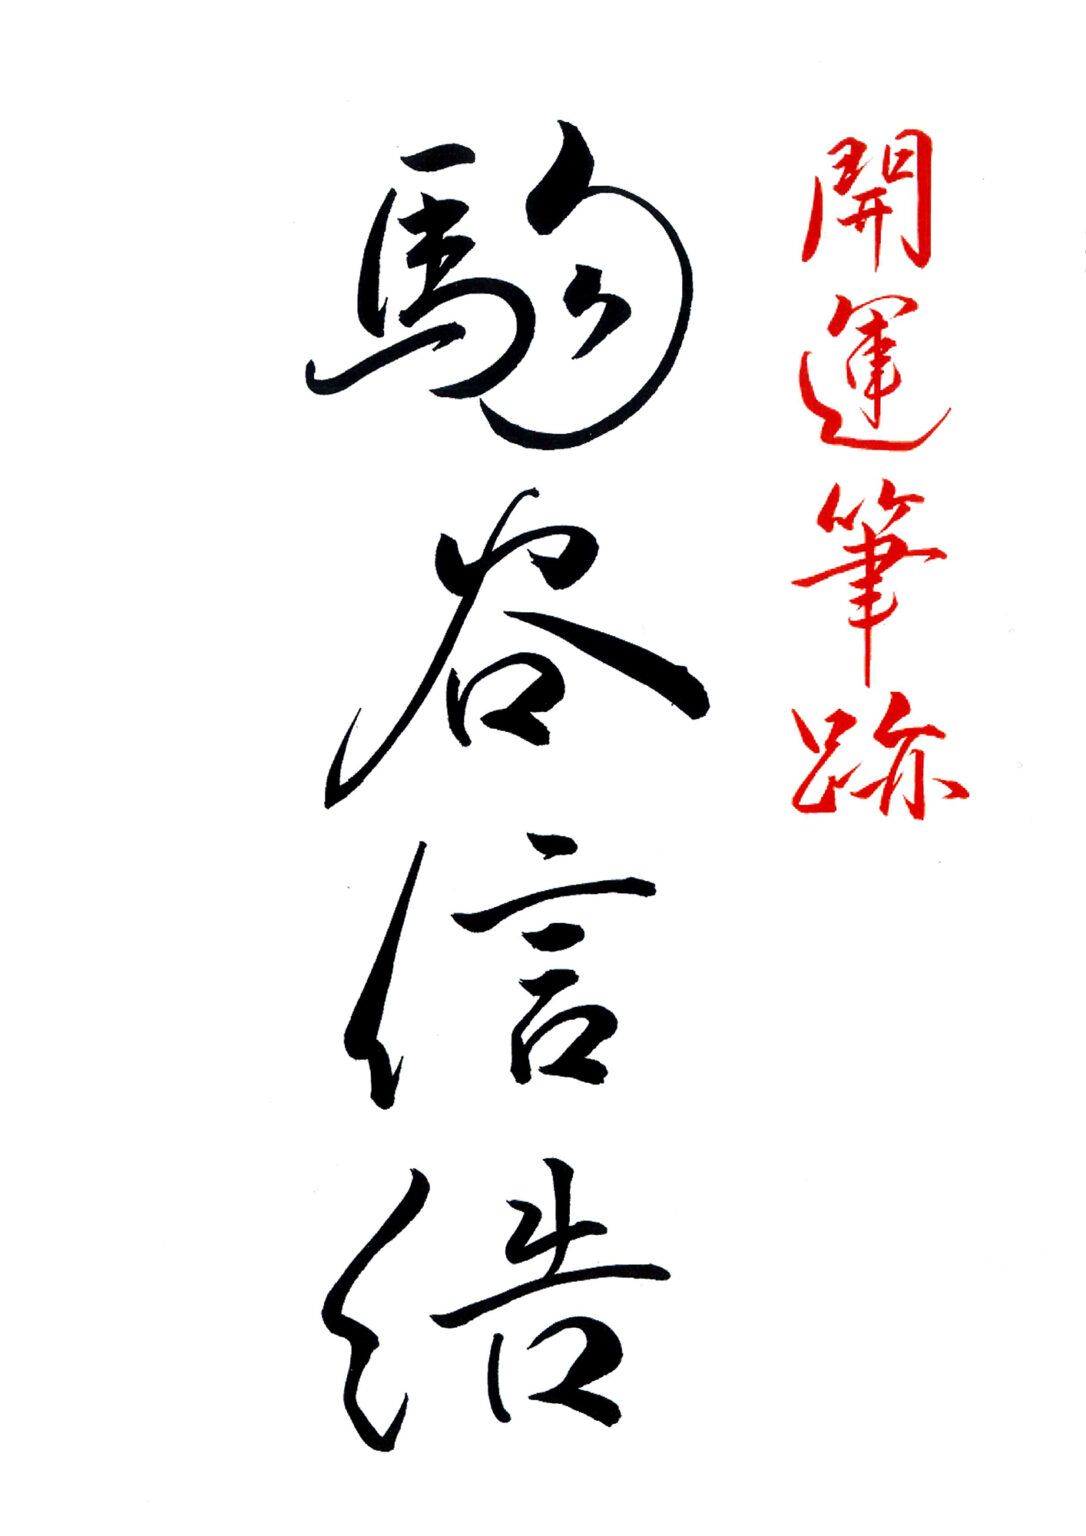 開運筆跡
駒谷信浩